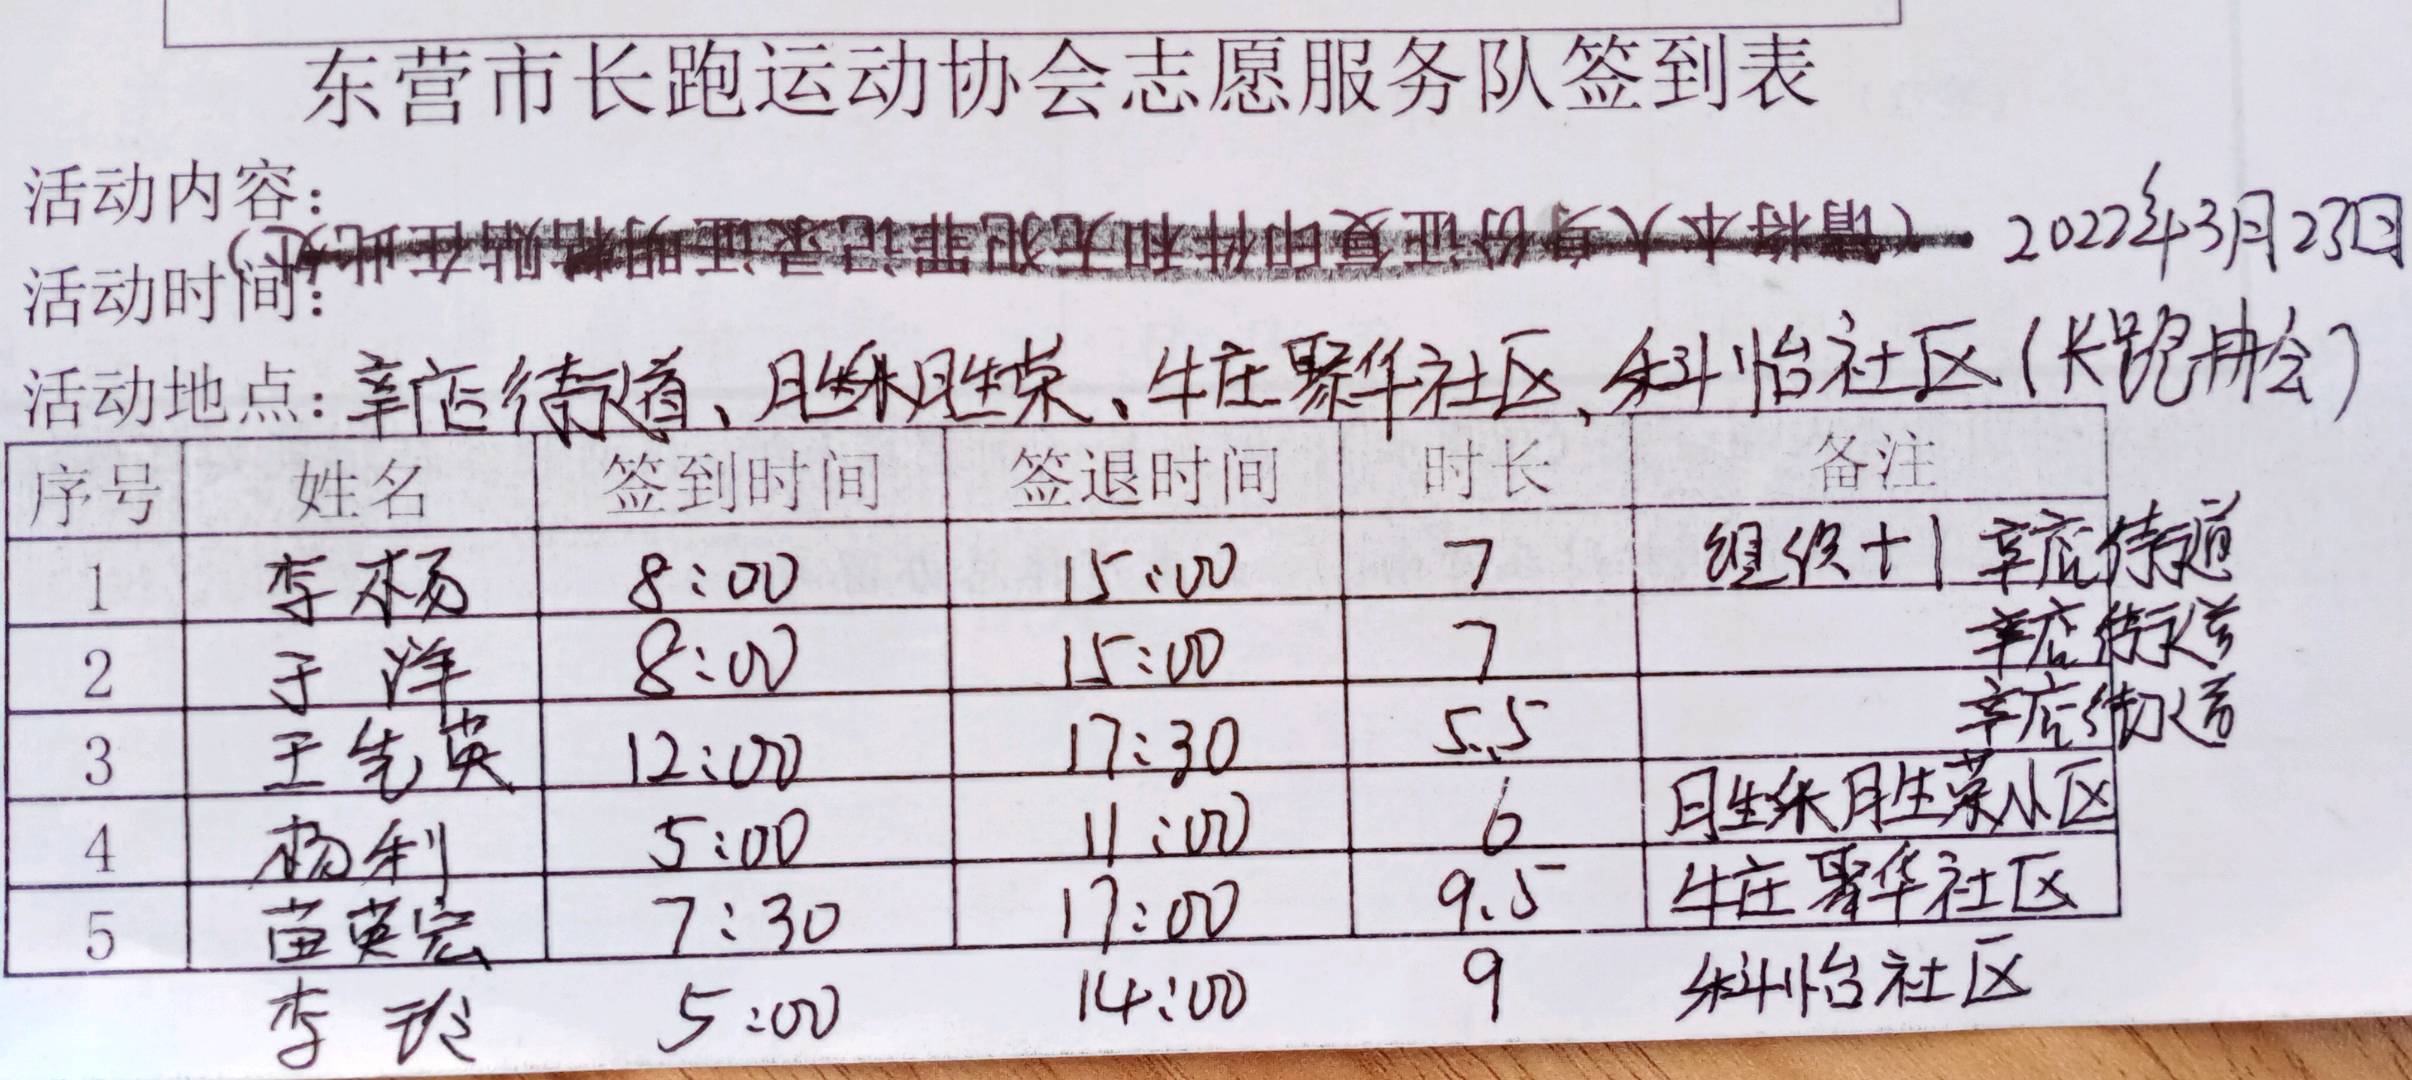 东营市长跑运动协会志愿服务队签到表
活动内容:
(请将本人身份证复印件和无犯罪记录证明粘贴在此处)
2022年3月23日
活动时间:
活动地点:辛店街道、胜利胜荣、牛庄聚华社区、科怡社区(长跑协会)
序号 姓名 签到时间 签退时间 时长 备注
1 李杨 8:00 15:00 7 组织+1 辛店街道
2 于洋 8:00 15:00 7 辛店街道
3 王先英 12:00 17:30 5.5 辛店街道
4 杨利 5:00 11:00 6 胜利胜荣小区
5 苗英宏 7:30 17:00 9.5 牛庄聚华社区
李玲 5:00 14:00 9 科怡社区